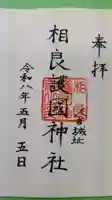 奉拝
相良護國神社
城址
令和八年五月五日